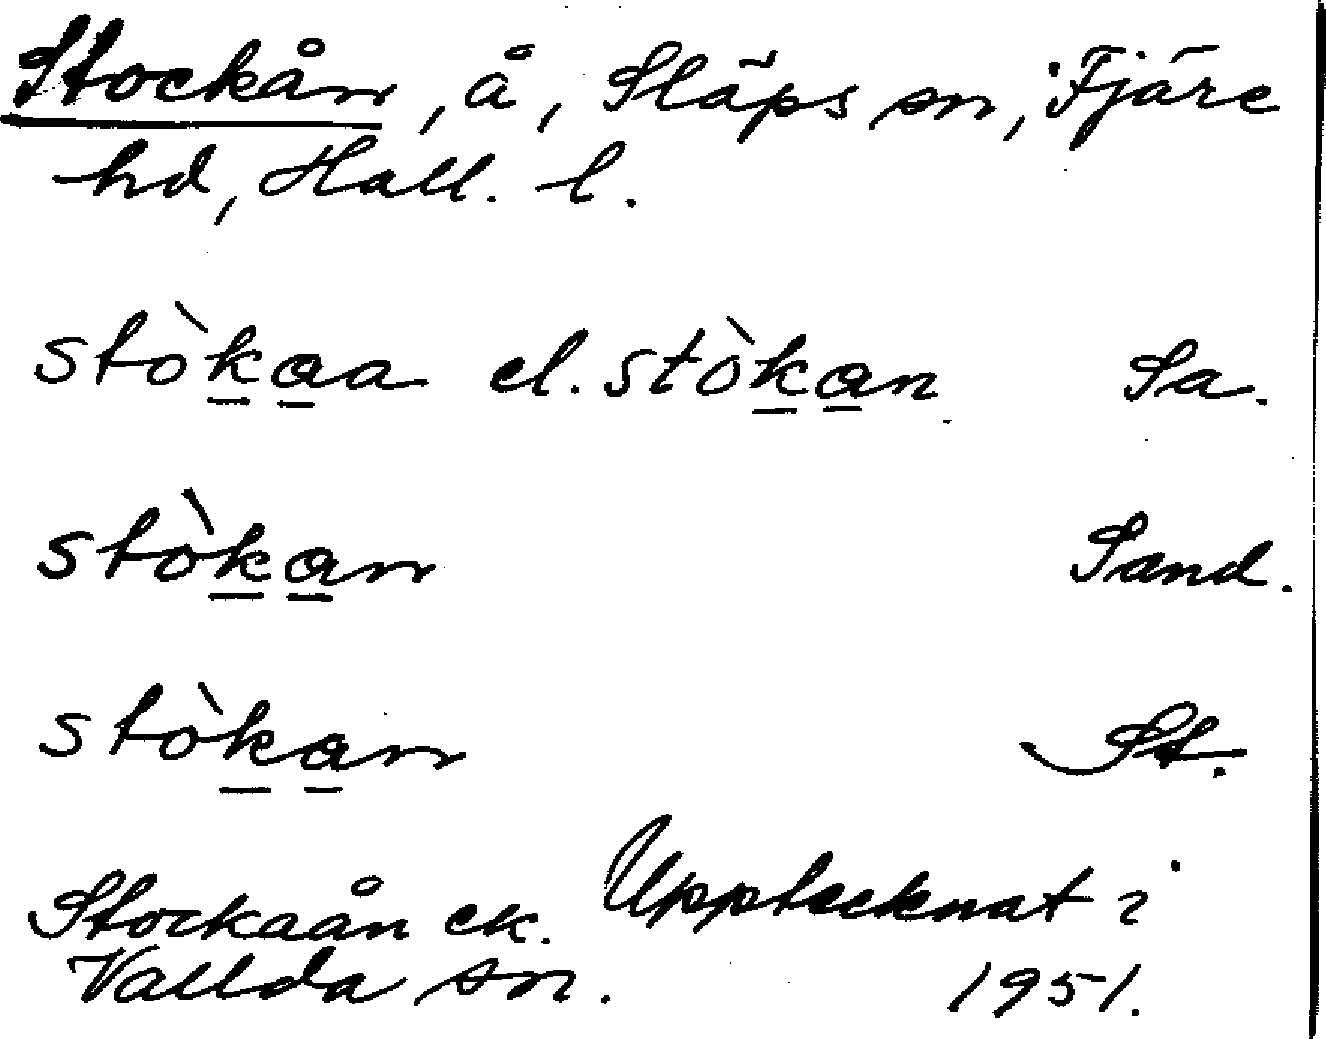 Stockån, å, Släps sn, Fjäre
hd, Hall. l.
stò̀kaa el. stò̀kan Sa.
stò̀kan Sand.
stò̀kan St.
Stockaån ek. Upptecknat i
Vallda sn. 1951.